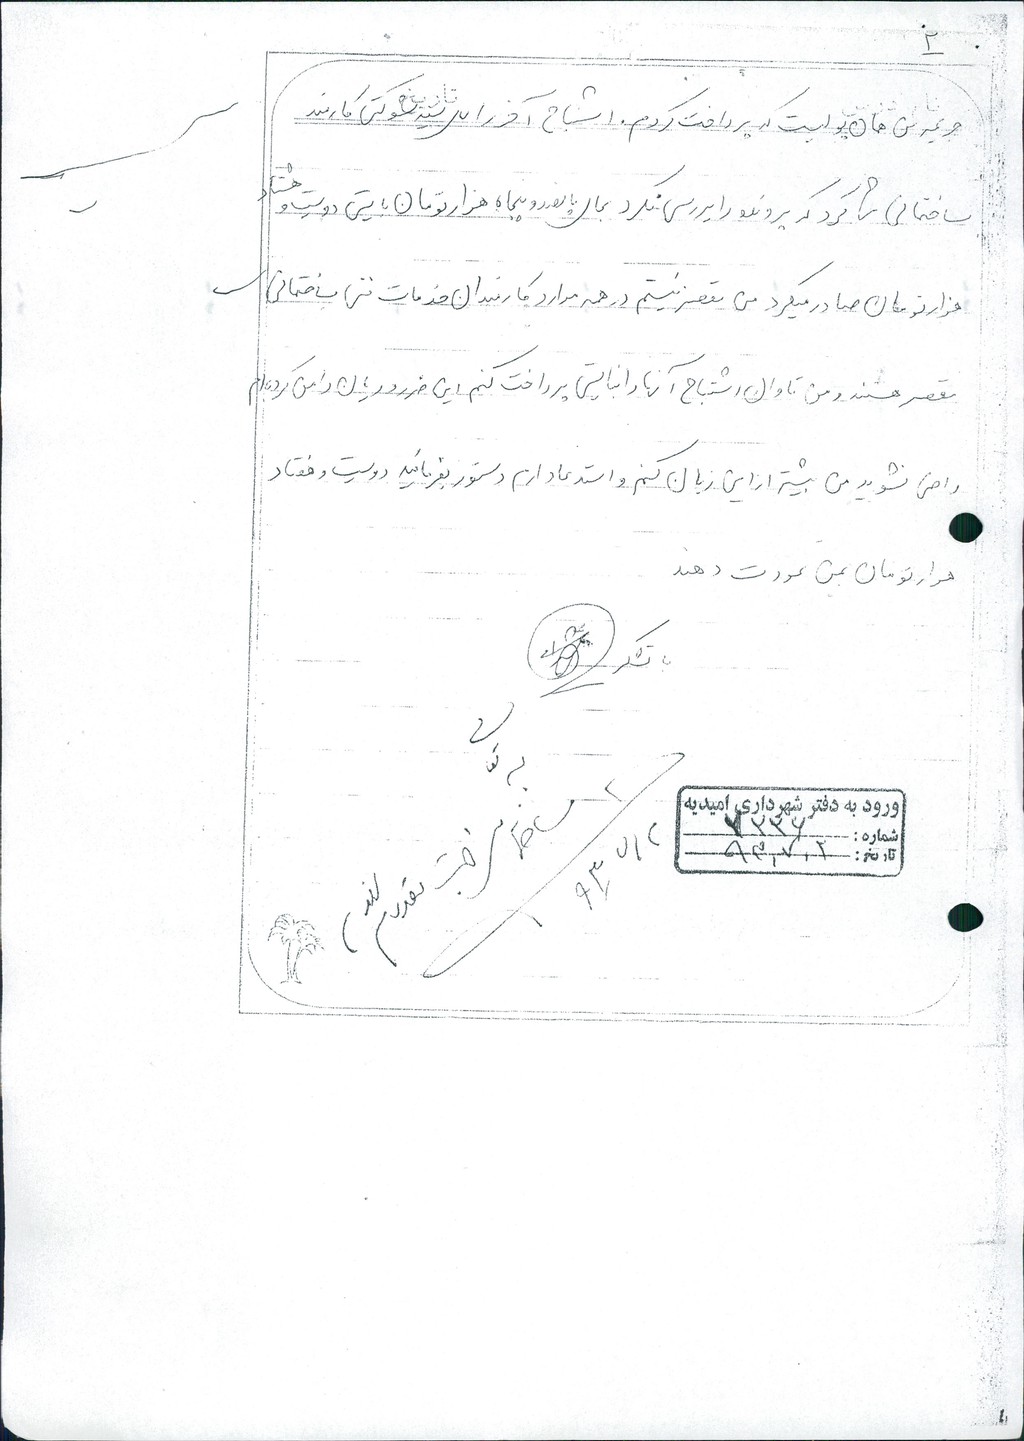 ۲
جریمه من همان پولیست که پرداخت کردم. اشتباه آخر را کارمند
ساختمانی کرد که پرونده را بررسی نکرد بجای پانصد و پنجاه هزار تومان بایستی دویست و هشتاد
هزار تومان صادر میکرد من مقصر نیستم در همه موارد کارمندان خدمات فنی ساختمانی
مقصر هستند و من تاوان اشتباه آنها را نبایستی پرداخت کنم این ضرر و زیان را من کرده‌ام
راضی نشوید من بیشتر از این زیان کنم و استدعا دارم دستور بفرمائید دویست و هفتاد
هزار تومان بمن عودت دهند
با تشکر
ورود به دفتر شهرداری امیدیه
شماره: ۷۳۳۶
تاریخ: ۹۳,۷,۲
ساختمانی جهت
۹۳/۷/۲